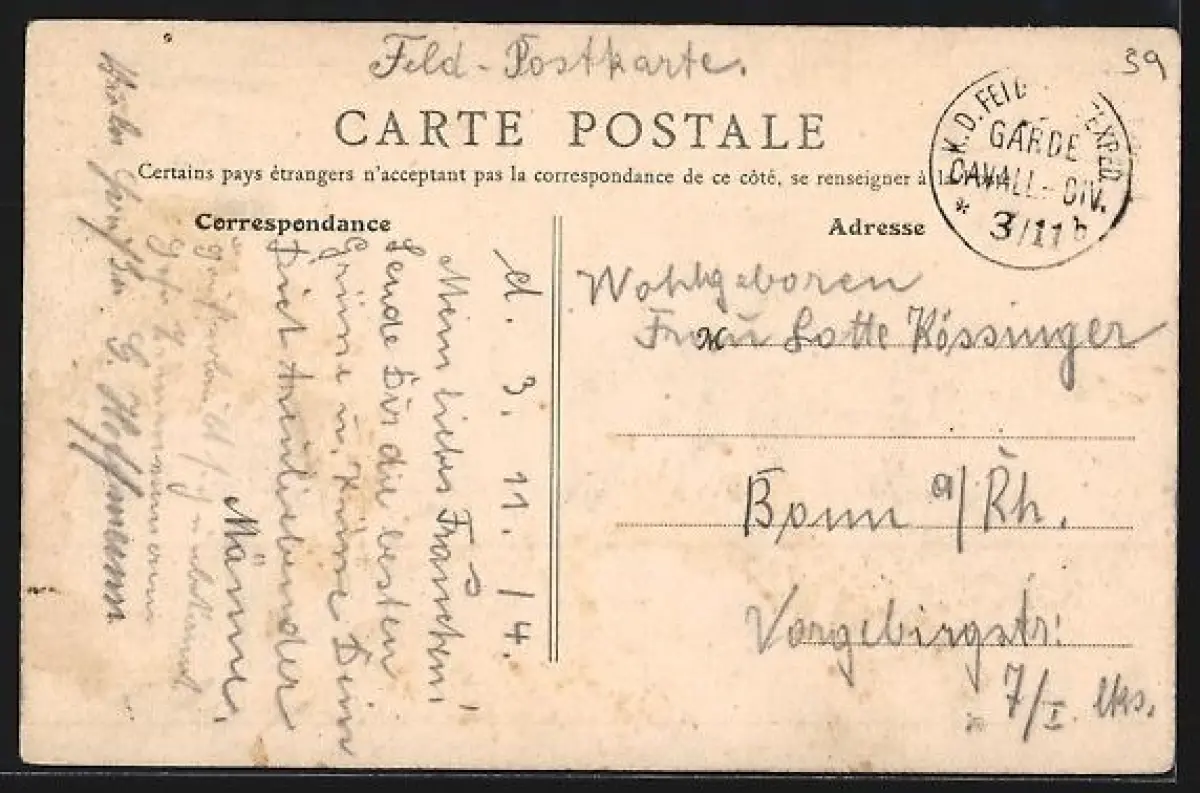 Feld-Postkarte.
39
CARTE POSTALE
Certains pays étrangers n'acceptant pas la correspondance de ce côté, se renseigner à la
K.D. FELD EXPED.
GARDE
CAVALL.-DIV.
* 3/11 b
Correspondance
Adresse
d. 3. 11. 14.
Mein liebes Frauchen!
Sende Dir die besten
Grüsse u. Küsse Dein
Dich
Männe.
G. Hoffmann
Wohlgeboren
Frau Lotte Kössinger
Bonn a/Rh.
Vorgebirgstr:
7/I. lks.